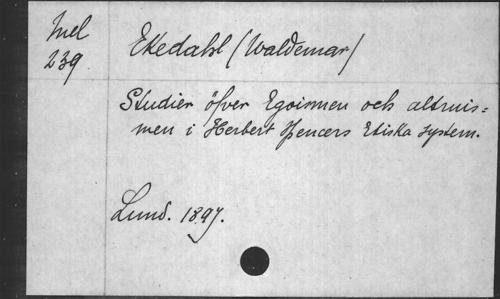 Mel
239
Ekedahl (Waldemar)
Studier öfver Egoismen och altruis=
men i Herbert Spencers Etiska system.
Lund. 1897.